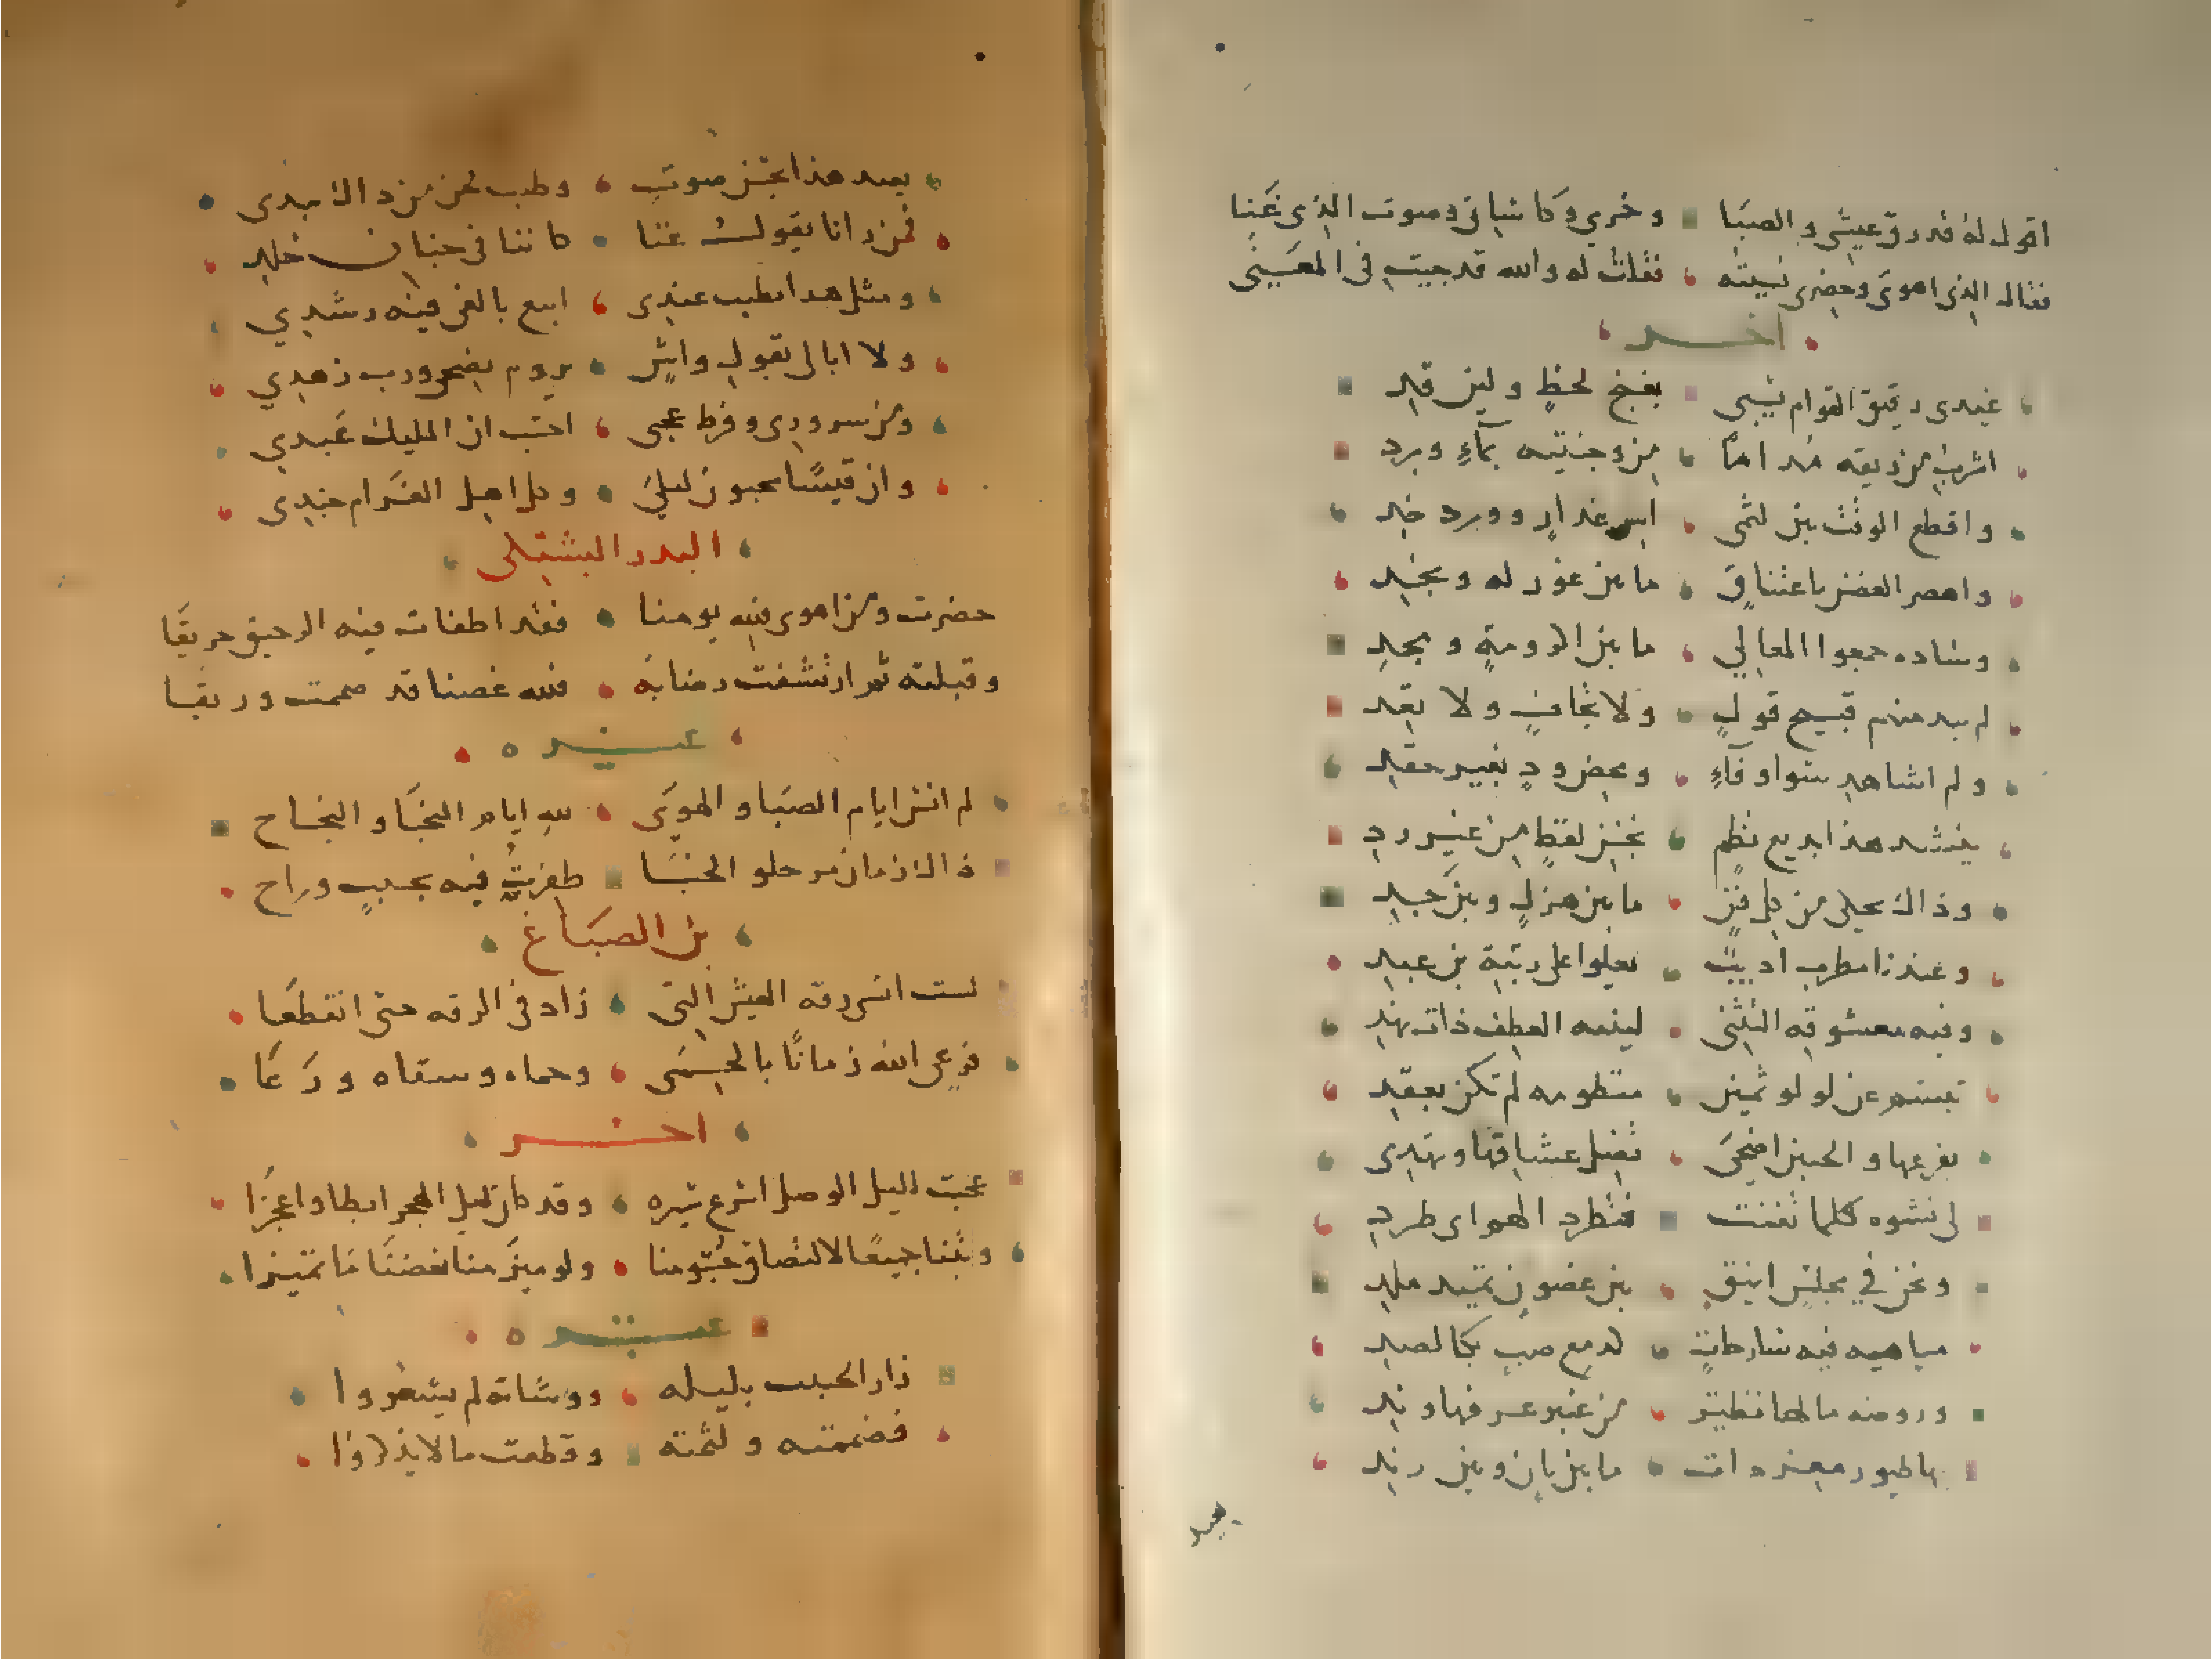 اقول له قد رق عيشي والصبا وخري وكاساتي وصوت الذي غنا
فقال الذي اهوى وحضري نسيته فقلت له والله قد جيت في المعنى
اخر
عندى رقيق القوام يسبى بغنج لحظٍ ولين قد
اشرب من ريقه مداما من وجنتيه بماءِ ورد
واقطع الوقت بين لثمى اس عذارٍ وورد خد
واهصر الغصن باعتناقٍ ما بين غور له ونجد
وساده جمعوا المعالي ما بين اكرومةٍ ومجد
لم يبد منهم قبيح قولٍ ولا تجافٍ ولا تعد
ولم اشاهد سوا وفآءِ ومحض ودٍ بغير حقد
ينشد هذا بديع نظم بحسن لفظٍ من غير رد
وذاك يحلى من كل فنٍ ما بين هزلٍ وبين جد
وعندنا مطرب اديب يعلوا على رتبة بن عبد
وفيه معشوقه التثنى لينه العطف ذات نهد
تبسم عن لولو ثمين منظومه لم تكن بعقد
بفرعها والجبين اضحى تضل عشاقها وتهدى
لى نشوه كلما تغنت فتطرد الهم اى طرد
ونحن في مجلس انيق بين غصونٍ تميد ملد
مياهه فيه سارحاتٍ كدمع صبٍ بكا لصد
وروضه ما لها نظير من عنبر عرفها وند
بها طيور مغردات ما بين بانٍ وبين رند
بعيد
يعيد هذا بحسن صوت وطيب لحن من د الاكبدى
فمن رانا يقول عنا كاننا في جنان خلد
ومثل هدا يطيب عندى ابيع بالغى فيه رشدي
ولا ابالى بقول واشٍ يروم بضحو ورب زهدي
ومن سروري وفرط عجبى احسب ان المليك عبدي
وان قيسًا مجنون ليلى وكل اهل الغرام جندى
البدر البشتكى
حضرت ومن اهوى فلله يومنا فقد اطفات فيه الرحيق حريقا
وقبلته ثم ارتشفت رضابه فلله غصنا قد ضممت وريقا
غيره
لم انس ايام الصبا والهوى لله ايام النجا والنجاح
ذاك زمان مر حلو الجنا ظفرت فيه بحبيبٍ وراح
بن الصباغ
لست انسى رقه العيش التى زاد في الرقه حتى انقطعا
فرعى الله زمانًا بالحمى وحماه وسقاه ورعا
اخر
عجبت لليل الوصل اسرع سيره وقد كان ليل الهجر ابطا واعجزا
وبتنا جميعًا لالتصاق جسومنا ولو ميز منا بعضنا ما تميزا
غيره
زار الحبيب بليله ووشاته لم يشعروا
فضممته ولثمته وقطعت ما لا يذكروا